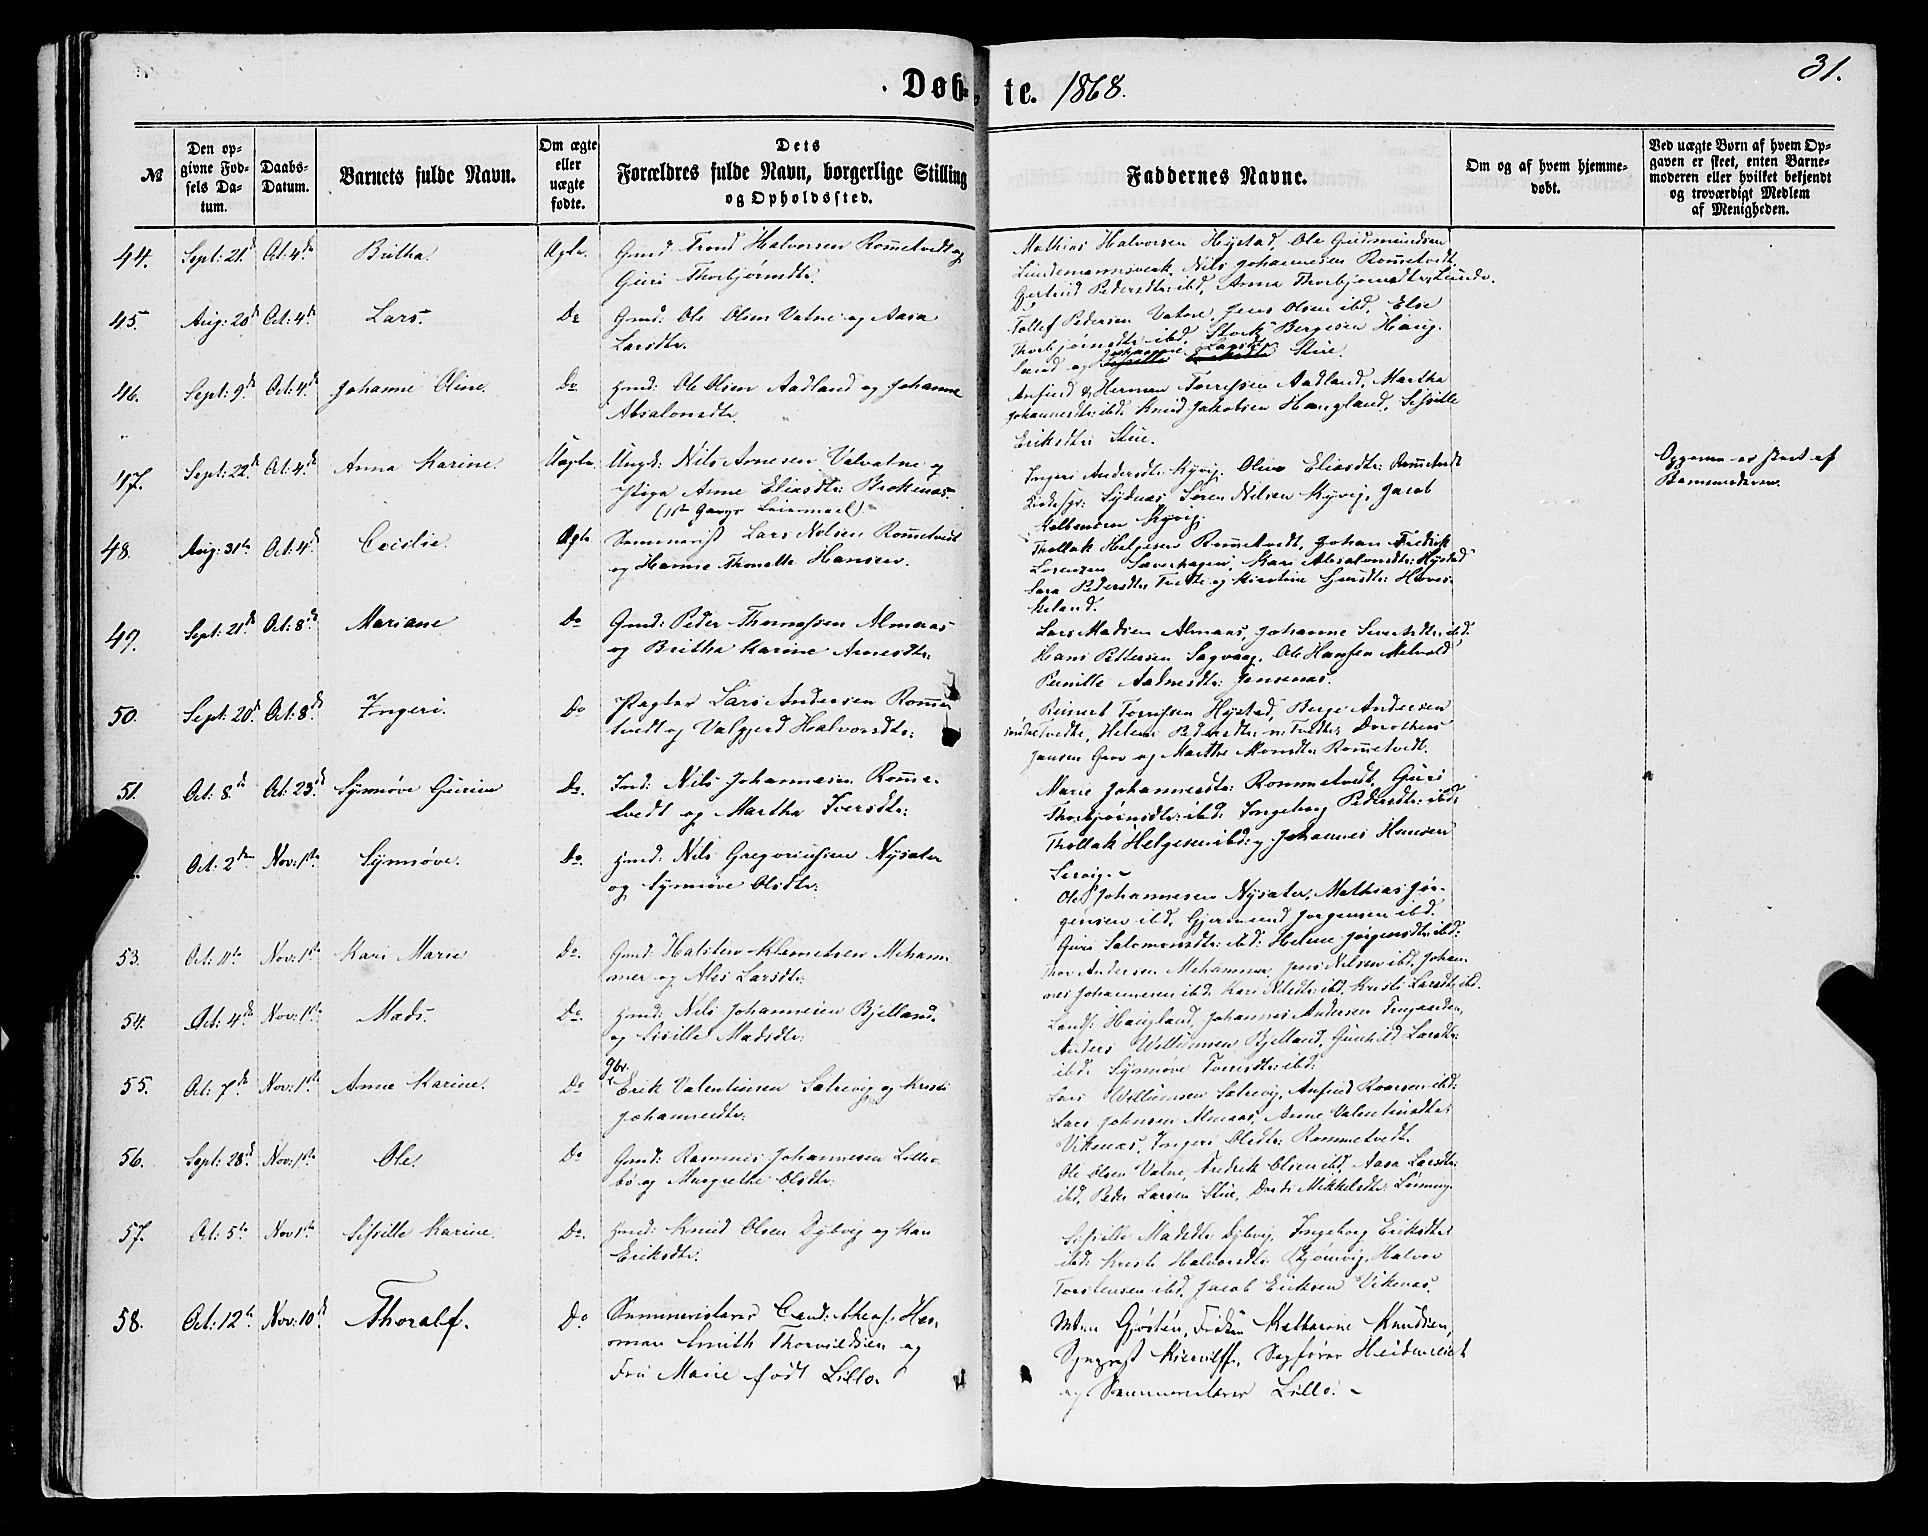 Døb-te. 1868.
31.
№
Den opgivne Fødsels Datum.
Daabs-Datum.
Barnets fulde Navn.
Om ægte eller uægte fødte.
Dets Forældres fulde Navn, borgerlige Stilling og Opholdssted.
Faddernes Navne.
Om og af hvem hjemmedøbt.
Ved uægte Børn af hvem Opgaven er skeet, enten Barnemoderen eller hvilket bekjendt og troværdigt Medlem af Menigheden.
44. Sept: 21de Oct: 4de Britha. Ægte. Gmd Trond Halvorsen Rommetvedt og
Guri Thorbjørnsdtr.
Mathias Halvorsen Hystad, Ole Gudmundsen
Lindemannsverk, Nils Johannesen Rommetvedt
Gertrud Pedersdtr: ibd, Anna Thorbjørnsdtr:
45. Aug: 20de Oct: 4de Lars. Do Gmd: Ole Olsen Vatne og Aasa
Larsdtr.
Tollef Pedersen Vatne, Jens Olsen ibd, Else
Thorbjørnsdtr ibd, Bergesen Haug-
land og Johanne Larsdtr Stue.
46. Sept: 9de Oct: 4de Johanne Oline. Do Gmd: Ole Olsen Aadland og Johanne
Absalonsdtr.
Anfind & Herman Torressen Aadland, Martha
Johannesdtr: ibd. Knud Jakobsen Haugland, Sissille
Eriksdtr Stue.
47. Sept: 22de Oct: 4de Anna Karine. Uægte. Ungk: Nils Arnesen Valvatne og
Piga Anne Eliasdtr:
(1ste Gangs Leiermaal).
Ingeri Andersdtr Kyvig, Oline Eliasdtr: Rommetvedt
Sydnæs Søren Nilsen Kyvig, Jacob
Kyvig.
Opgaven er skeet af
Barnemoderen.
48 Aug: 31te Oct: 4de Cecilie. Ægte Lars Nilsen Rommetvedt
og Hanne Thonette Hansen.
Thollak Helgesen Rommetvedt, Johan Fredrik
Lorenzen Kari Absalonsdtr: Hystad
Sara Pedersdtr
49. Sept: 21de Oct: 8de Mariane Do Gmd: Peder Thomassen Almaas
og Britha Karine Arnesdtr.
Lars Madsen Almaas, Johanne ibd.
Hans Pettersen Sagvaag, Ole Hansen
Pernille Jensenæs.
50. Sept: 20de Oct: 8de Ingeri. Do Pagter Lars Andersen Romme-
tvedt og Valgjerd Halvorsdtr.
Reinert Torressen Hystad, Berge Andersen
Tvedte, Helene Pedersdtr n: Tvedte, Dorothea
Jansen Grov og Martha Monsdtr Rommetvedt.
51. Oct: 8de Oct: 25de Synnøve Gurine Do. Nils Johannesen Romme-
tvedt og Martha Iversdtr.
Marie Johannesdtr: Rommetvedt, Guri
Thorbjørnsdtr: ibd. Ingeborg Pedersdtr: ibd.
Thollak Helgesen ibd: og Johannes Hansen
Oct: 2den Nov: 1ste Synnøve. Do. Gmd: Nils Gregoriussen Nysæter
og Synnøve Olsdtr.
Ole Johannesen Nysæter, Mathias Jør-
gensen ibd, Gjermund Jørgensen ibd.
Guri Salomonsdtr: ibd: Helene Jørgensdtr: ibd:
53. Oct: 11te Nov: 1ste Kari Marie Do. Gmd: Halsten Klemetsen Meham-
mer og Ales Larsdtr.
Thor Andersen Mehammer, Jens Nilsen ibd, Johan-
nes Johannesen ibd. Kari Nilsdtr: ibd. Kristi Larsdtr ibd.
54. Oct: 4de Nov: 1ste Mads. Do. Gmd: Nils Johannesen Bjelland,
og Sissille Madsdtr.
Haugland, Johannes Andersen
Anders Willumsen Bjelland, Gunhild Larsdtr:
ibd. Synnøve ibd:
55. Oct: 7de Nov: 1ste Anna Karine. Do Gbr. Erik Valentinsen Sætrevig og Kristi
Johannesdtr.
Lars Willumsen Sætrevig, Anfind Roarsen ibd:
Lars Johnsen Almaas, Anne Valentinsdtr:
Vikenæs, Ingeri Olsdtr: Rommetvedt.
56. Sept: 28de Nov: 1ste Ole. Do Gmd: Rasmus Johannesen Lille-
bø og Margrethe Olsdtr.
Ole Olsen Vatne, Fredrik Olsen ibd, Aasa Larsdtr:
ibd, Peder Larsen Stue, Dordi Mikkelsdtr
57. Oct: 5te Nov 1ste Sissille Karine. Do. Gmd: Knud Olsen Dybvig og Kari
Eriksdtr.
Sissille Madsdtr Dybvig, Ingeborg Eriksdtr
ibd: Kristi Halvorsdtr Halvor
Torstensen ibd, Jacob Eriksen Vikenæs.
58. Oct: 12te Nov: 10de Thoralf. Do Seminarielærer Cand: theol: Her-
man Smith Thorvildsen og
Fru Marie født Lillo.
Gjøstein, Frøken Katharine Knudsen,
Sagfører
og Seminarielærer Lillo.